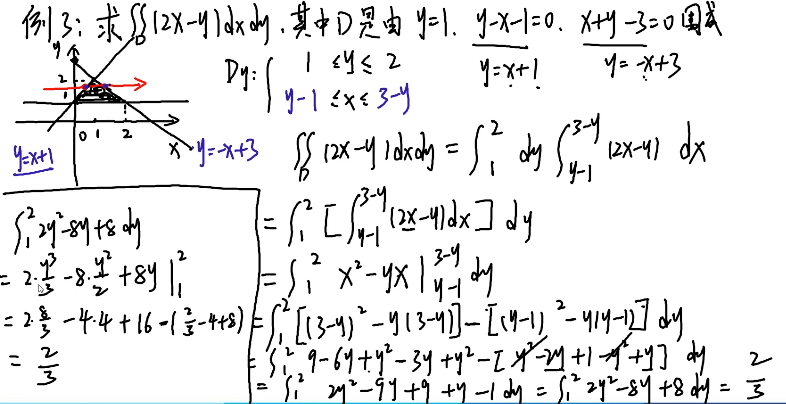 例3: 求∬_D (2x-y)dxdy. 其中D是由 y=1. y-x-1=0. x+y-3=0 围成
y=x+1 y=-x+3
Dy: { 1 ≤y≤ 2
y-1 ≤x≤ 3-y
y
2
1
0 1 2 x
y=x+1 y=-x+3
∬_D (2x-y)dxdy = ∫_1^2 dy ∫_{y-1}^{3-y} (2x-y) dx
= ∫_1^2 [∫_{y-1}^{3-y} (2x-y)dx] dy
= ∫_1^2 x²-yx |_{y-1}^{3-y} dy
= ∫_1^2 [(3-y)²-y(3-y)]-[(y-1)²-y(y-1)] dy
= ∫_1^2 9-6y+y²-3y+y²-[y²-2y+1-y²+y] dy
= ∫_1^2 2y²-9y+9+y-1 dy = ∫_1^2 2y²-8y+8 dy = 2/3
∫_1^2 2y²-8y+8 dy
= 2·y³/3-8·y²/2+8y |_1^2
= 2·8/3-4·4+16-(2/3-4+8)
= 2/3